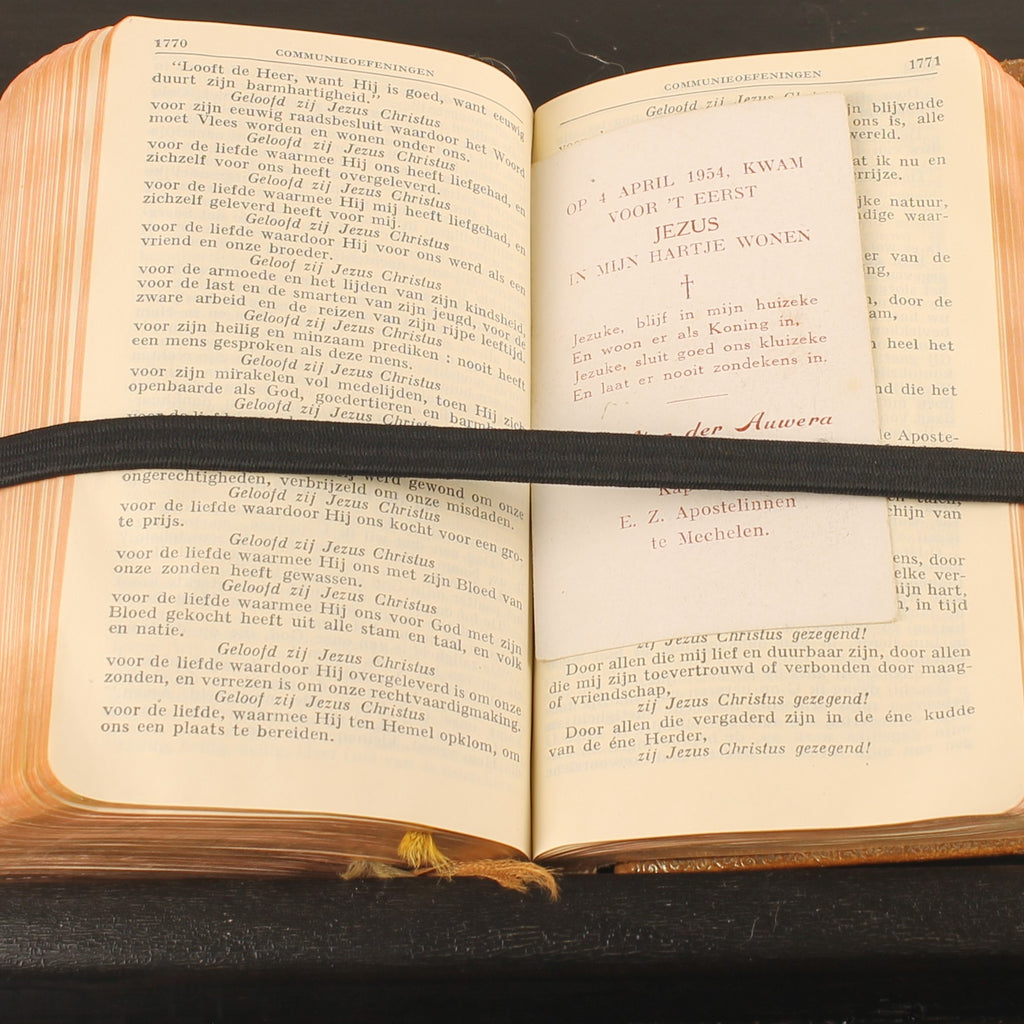 1770
COMMUNIEOEFENINGEN
"Looft de Heer, want Hij is goed, want eeuwig
duurt zijn barmhartigheid."
Geloofd zij Jezus Christus
voor zijn eeuwig raadsbesluit waardoor het Woord
moet Vlees worden en wonen onder ons.
Geloofd zij Jezus Christus
voor de liefde waarmee Hij ons heeft liefgehad, en
zichzelf voor ons heeft overgeleverd.
Geloofd zij Jezus Christus
voor de liefde waarmee Hij mij heeft liefgehad, en
zichzelf geleverd heeft voor mij.
Geloofd zij Jezus Christus
voor de liefde waardoor Hij voor ons werd als een
vriend en onze broeder.
Geloof zij Jezus Christus
voor de armoede en het lijden van zijn kindsheid,
voor de last en de smarten van zijn jeugd, voor de
zware arbeid en de reizen van zijn rijpe leeftijd.
Geloofd zij Jezus Christus
voor zijn heilig en minzaam prediken : nooit heeft
een mens gesproken als deze mens.
Geloofd zij Jezus Christus
voor zijn mirakelen vol medelijden, toen Hij zich
openbaarde als God, goedertieren en
Geloofd zij Jezus Christus
werd gewond om onze
ongerechtigheden, verbrijzeld om onze misdaden.
Geloofd zij Jezus Christus
voor de liefde waardoor Hij ons kocht voor een gro-
te prijs.
Geloofd zij Jezus Christus
voor de liefde waarmee Hij ons met zijn Bloed van
onze zonden heeft gewassen.
Geloofd zij Jezus Christus
voor de liefde waarmee Hij ons voor God met zijn
Bloed gekocht heeft uit alle stam en taal, en volk
en natie.
Geloofd zij Jezus Christus
voor de liefde waardoor Hij overgeleverd is om onze
zonden, en verrezen is om onze rechtvaardigmaking.
Geloof zij Jezus Christus
voor de liefde, waarmee Hij ten Hemel opklom, om
ons een plaats te bereiden.
COMMUNIEOEFENINGEN
1771
Geloofd zij Jezus
blijvende
ons is, alle
wereld.
at ik nu en
natuur,
dige waar-
er van de
door de
heel het
nd die het
Aposte-
van
OP 4 APRIL 1954, KWAM
VOOR 'T EERST
JEZUS
IN MIJN HARTJE WONEN
Jezuke, blijf in mijn huizeke
En woon er als Koning in,
Jezuke, sluit goed ons kluizeke
En laat er nooit zondekens in.
der Auwera
E. Z. Apostelinnen
te Mechelen.
door
elke ver-
hart,
in tijd
zij Jezus Christus gezegend!
Door allen die mij lief en duurbaar zijn, door allen
die mij zijn toevertrouwd of verbonden door maag-
of vriendschap,
zij Jezus Christus gezegend!
Door allen die vergaderd zijn in de éne kudde
van de éne Herder,
zij Jezus Christus gezegend!